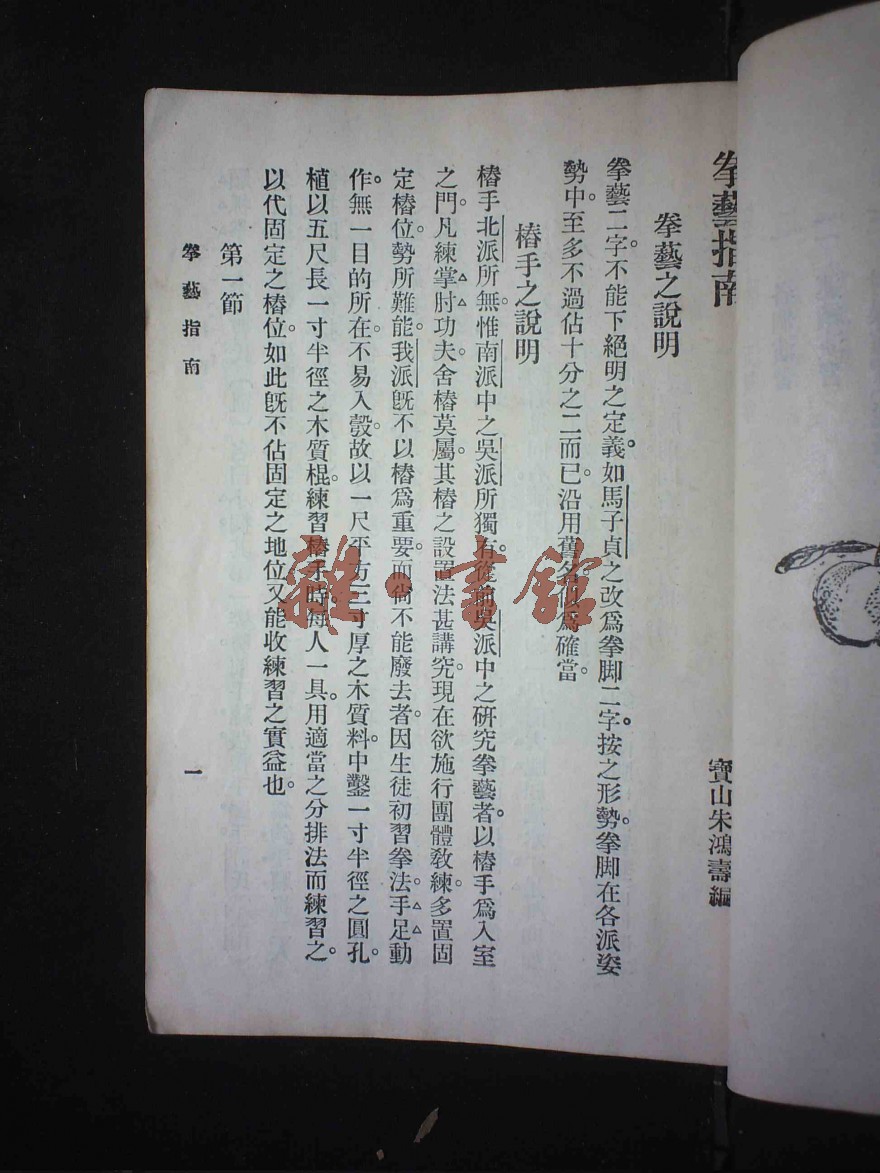 拳藝指南
寶山朱鴻壽編
拳藝之說明
拳藝二字。不能下絕明之定義。如馬子貞之改爲拳脚二字。按之形勢。拳脚在各派姿
勢中。至多不過佔十分之二而已。沿用舊名似爲確當。
樁手之說明
樁手北派所無。惟南派中之吳派所獨有。從前吳派中之硏究拳藝者。以樁手爲入室
之門。凡練掌肘功夫。舍樁莫屬。其樁之設置法甚講究。現在欲施行團體敎練。多置固
定樁位。勢所難能。我派旣不以樁爲重要。而尙不能廢去者。因生徒初習拳法。手足動
作。無一目的所在。不易入彀。故以一尺平方三寸厚之木質料。中鑿一寸半徑之圓孔。
植以五尺長一寸半徑之木質棍。練習樁手時。每人一具。用適當之分排法而練習之。
以代固定之樁位。如此旣不佔固定之地位。又能收練習之實益也。
第一節
拳藝指南
一
雜·書館